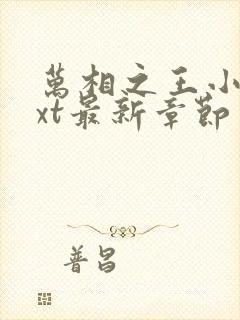 萬相之王小
xt最新章節
普昌